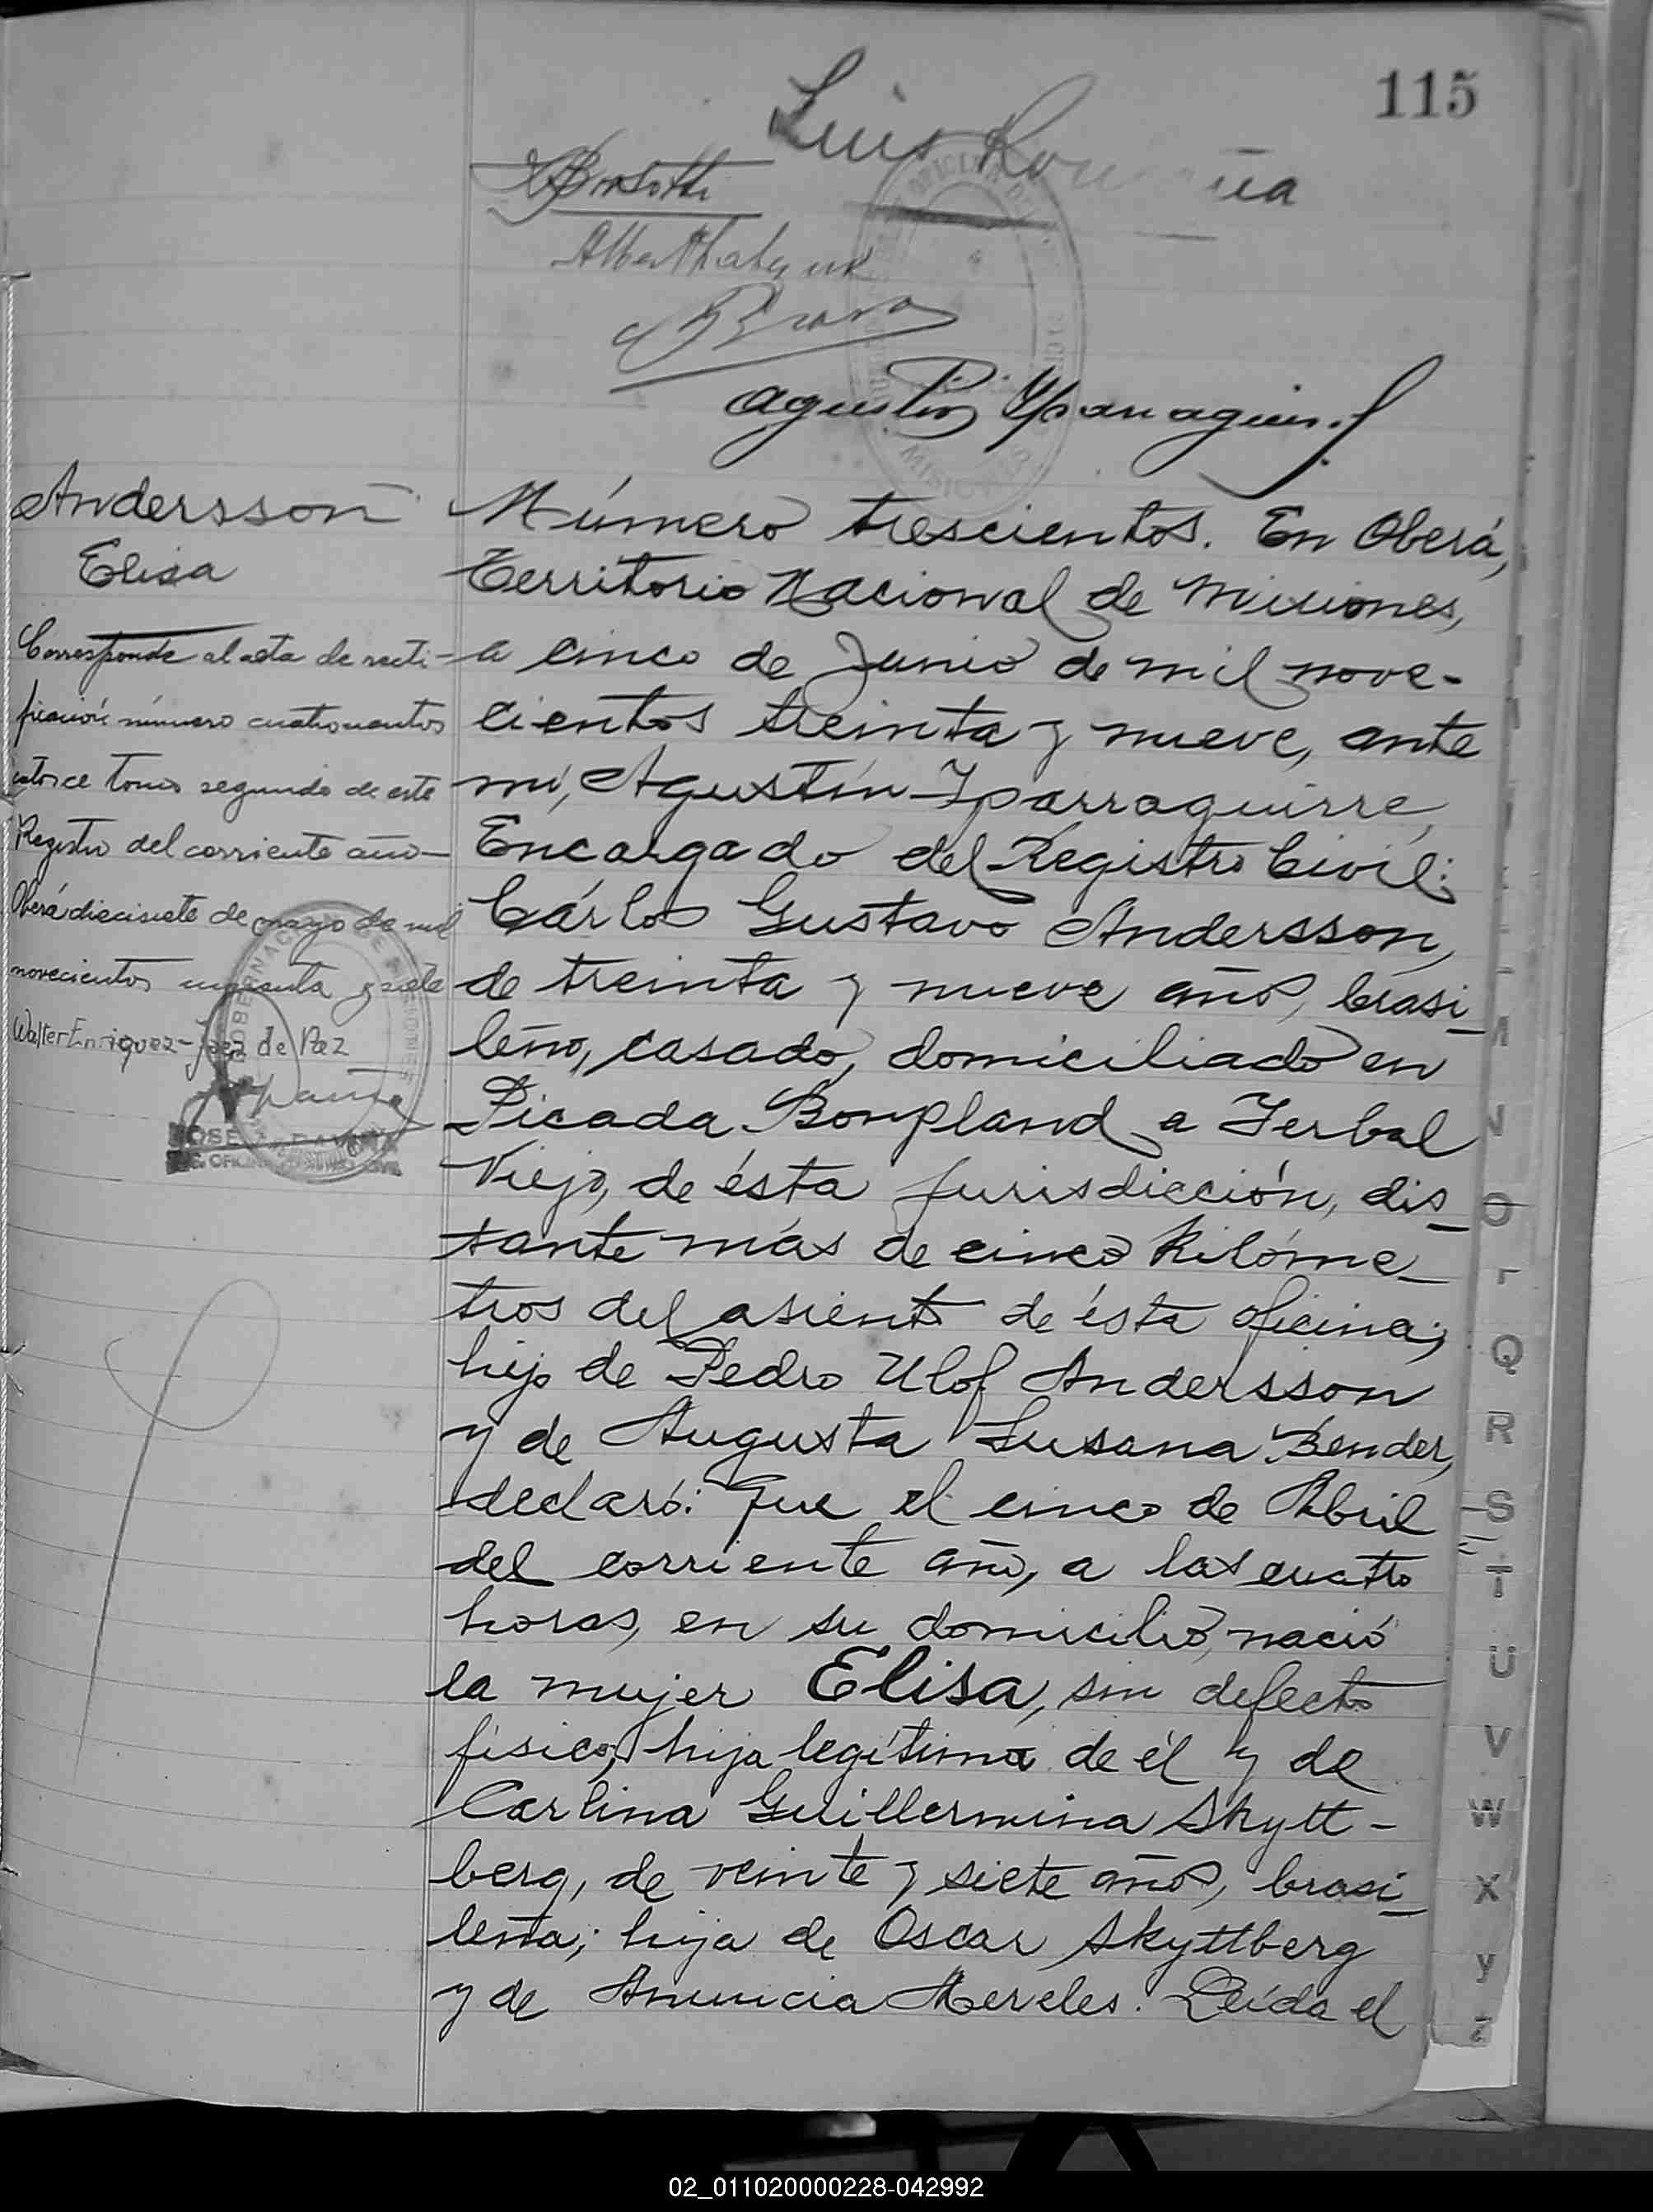 115
Luis
Agustín Yparraguirre
Andersson
Elisa
Corresponde al acta de recti-
ficación número cuatrocientos
catorce tomo segundo de este
Registro del corriente año-
Oberá diecisiete de mayo de mil
novecientos y siete
Walter Enriquez - Juez de Paz
JOSE
MISIONES
Número trescientos. En Oberá,
Territorio Nacional de Misiones,
a cinco de Junio de mil nove-
cientos treinta y nueve, ante
mí, Agustín Iparraguirre,
Encargado del Registro Civil:
Cárlos Gustavo Andersson,
de treinta y nueve años, brasi-
leño, casado, domiciliado en
Picada Bonpland a Yerbal
Viejo, de ésta jurisdicción, dis-
tante más de cinco kilóme-
tros del asiento de ésta oficina;
hijo de Pedro Ulof Andersson
y de Augusta Susana Bender,
declaró: Que el cinco de Abril
del corriente año, a las cuatro
horas, en su domicilio, nació
la mujer Elisa, sin defecto
físico, hija legítima de él y de
Carlina Guillermina Skytt-
berg, de veinte y siete años, brasi-
leña; hija de Oscar Skyttberg
y de Anuncia Mereles. Leída el
O
Q
R
S
T
U
V
W
X
Y
Z
02_011020000228-042992